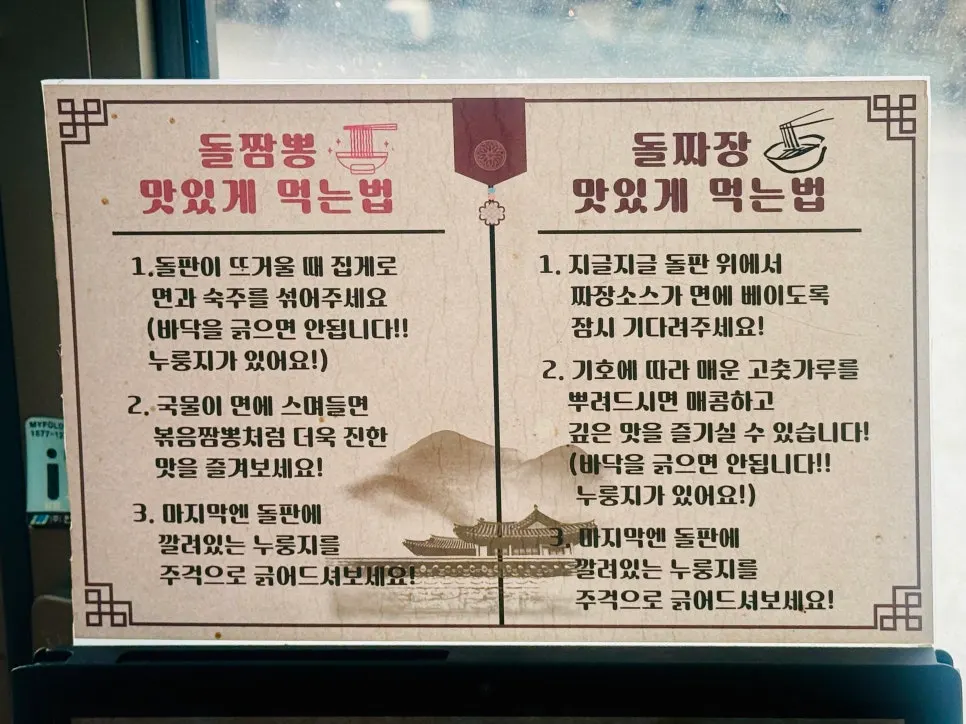 돌짬뽕
맛있게 먹는법
1.돌판이 뜨거울 때 집게로
면과 숙주를 섞어주세요
(바닥을 긁으면 안됩니다!!
누룽지가 있어요!)
2. 국물이 면에 스며들면
볶음짬뽕처럼 더욱 진한
맛을 즐겨보세요!
3. 마지막엔 돌판에
깔려있는 누룽지를
주걱으로 긁어드셔보세요!
돌짜장
맛있게 먹는법
1. 지글지글 돌판 위에서
짜장소스가 면에 베이도록
잠시 기다려주세요!
2. 기호에 따라 매운 고춧가루를
뿌려드시면 매콤하고
깊은 맛을 즐기실 수 있습니다!
(바닥을 긁으면 안됩니다!!
누룽지가 있어요!)
3. 마지막엔 돌판에
깔려있는 누룽지를
주걱으로 긁어드셔보세요!